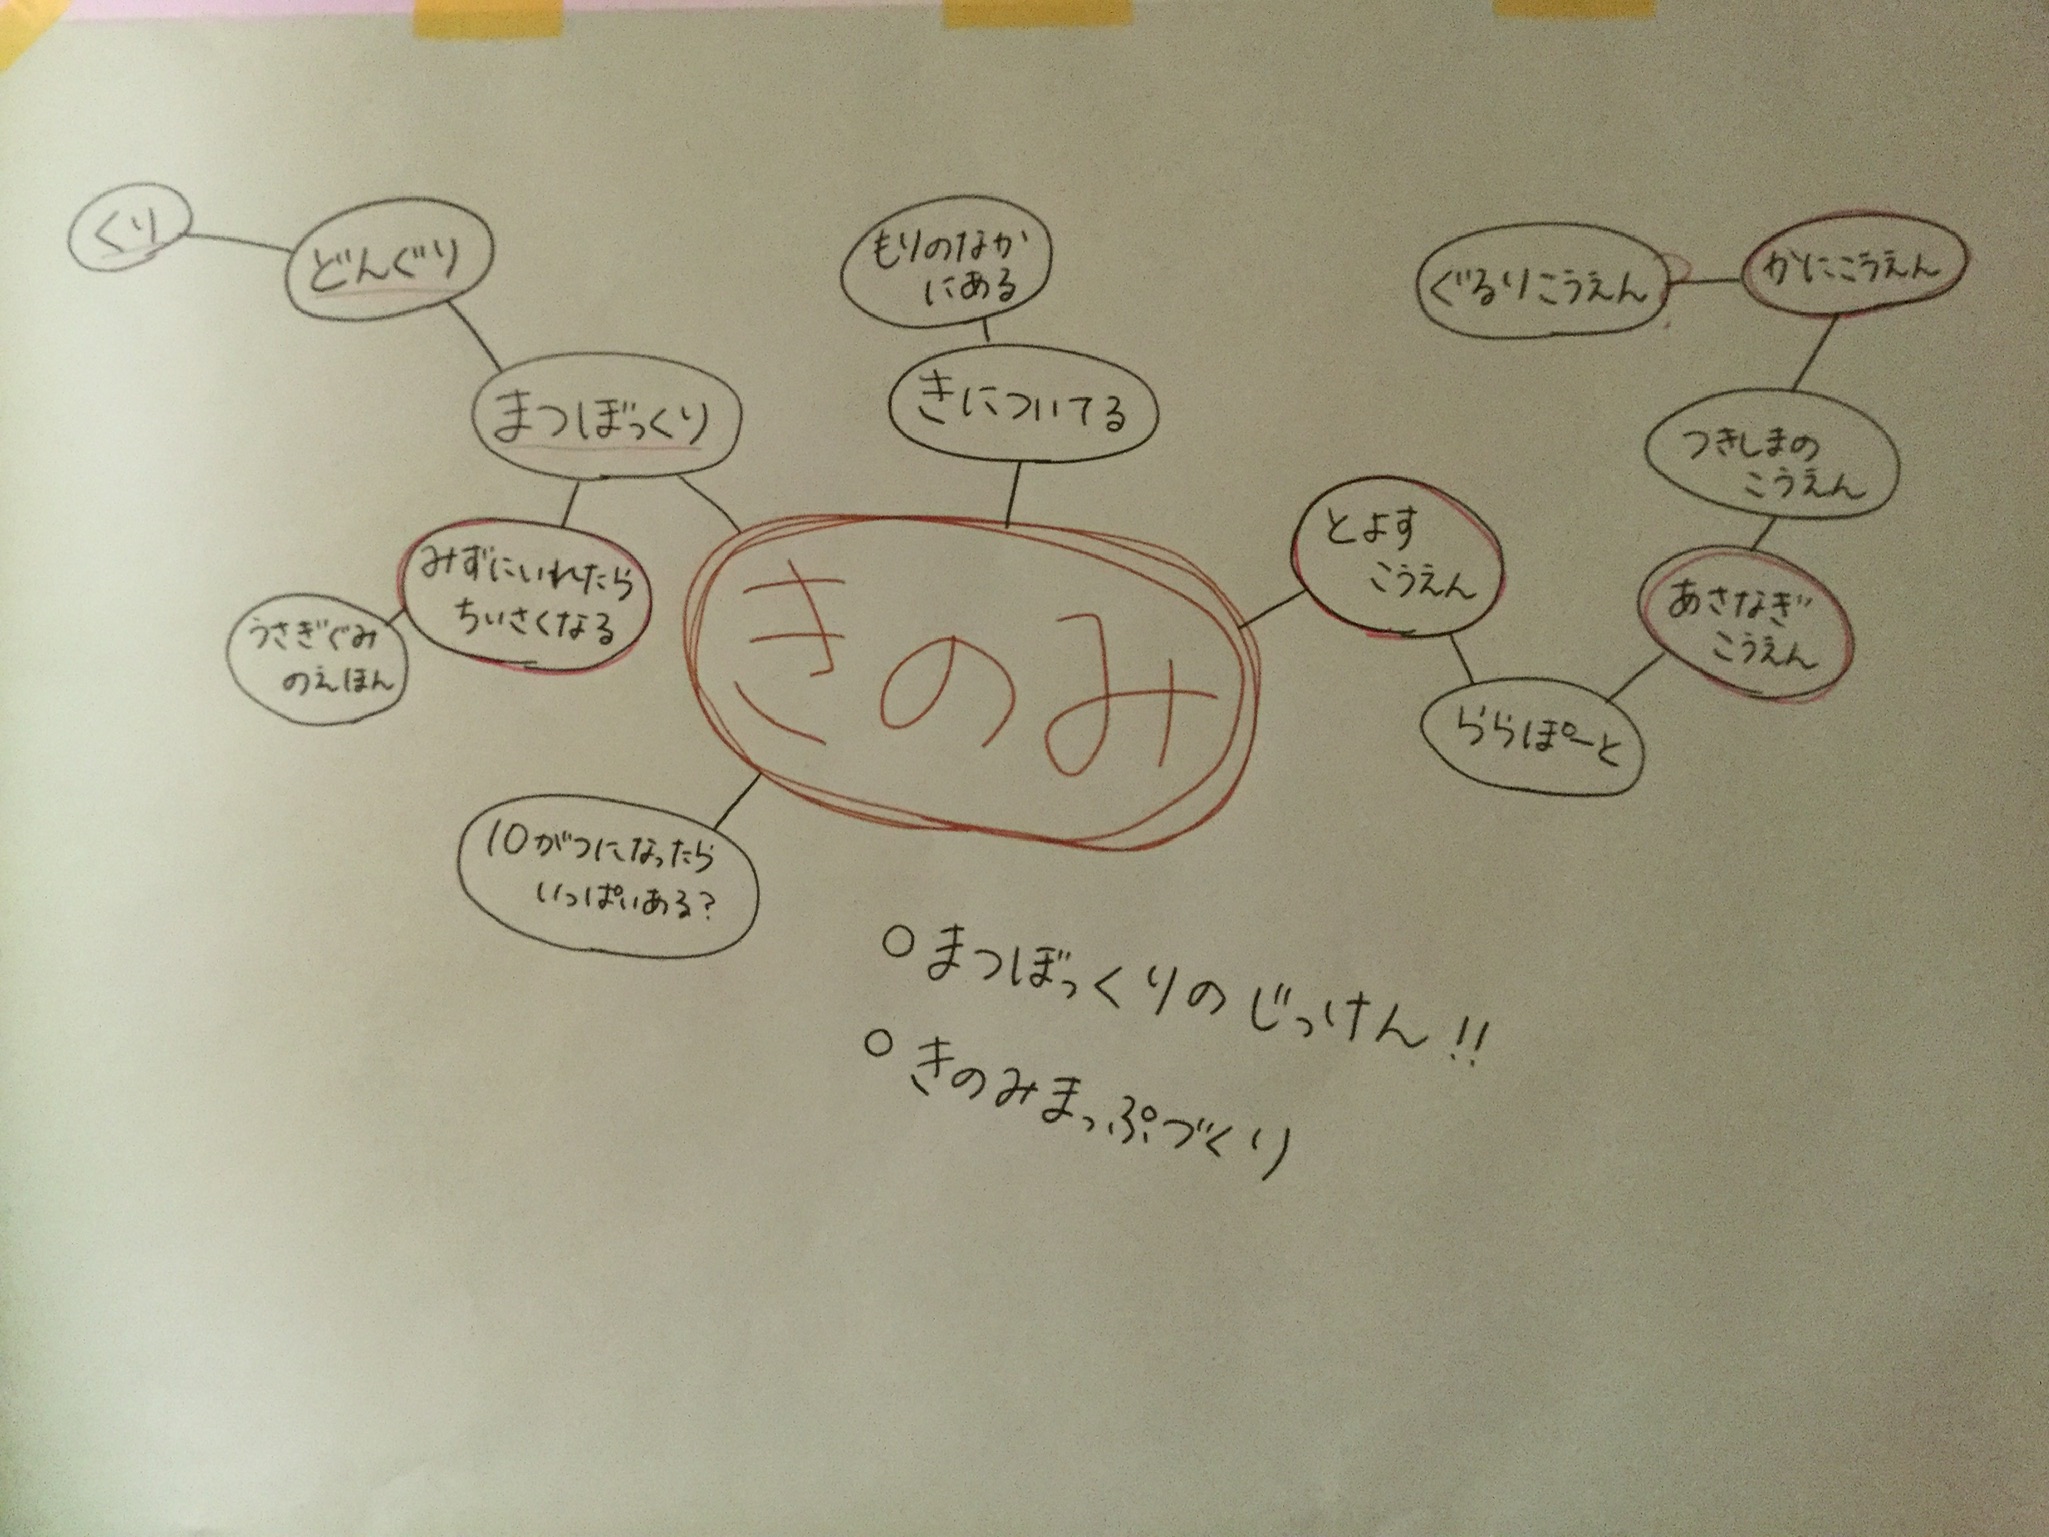 くり
どんぐり
まつぼっくり
みずにいれたら
ちいさくなる
うさぎぐみ
のえほん
もりのなか
にある
きについてる
きのみ
10がつになったら
いっぱいある?
とよす
こうえん
ららぽーと
あさなぎ
こうえん
つきしまの
こうえん
かにこうえん
ぐるりこうえん
○まつぼっくりのじっけん!!
○きのみまっぷづくり